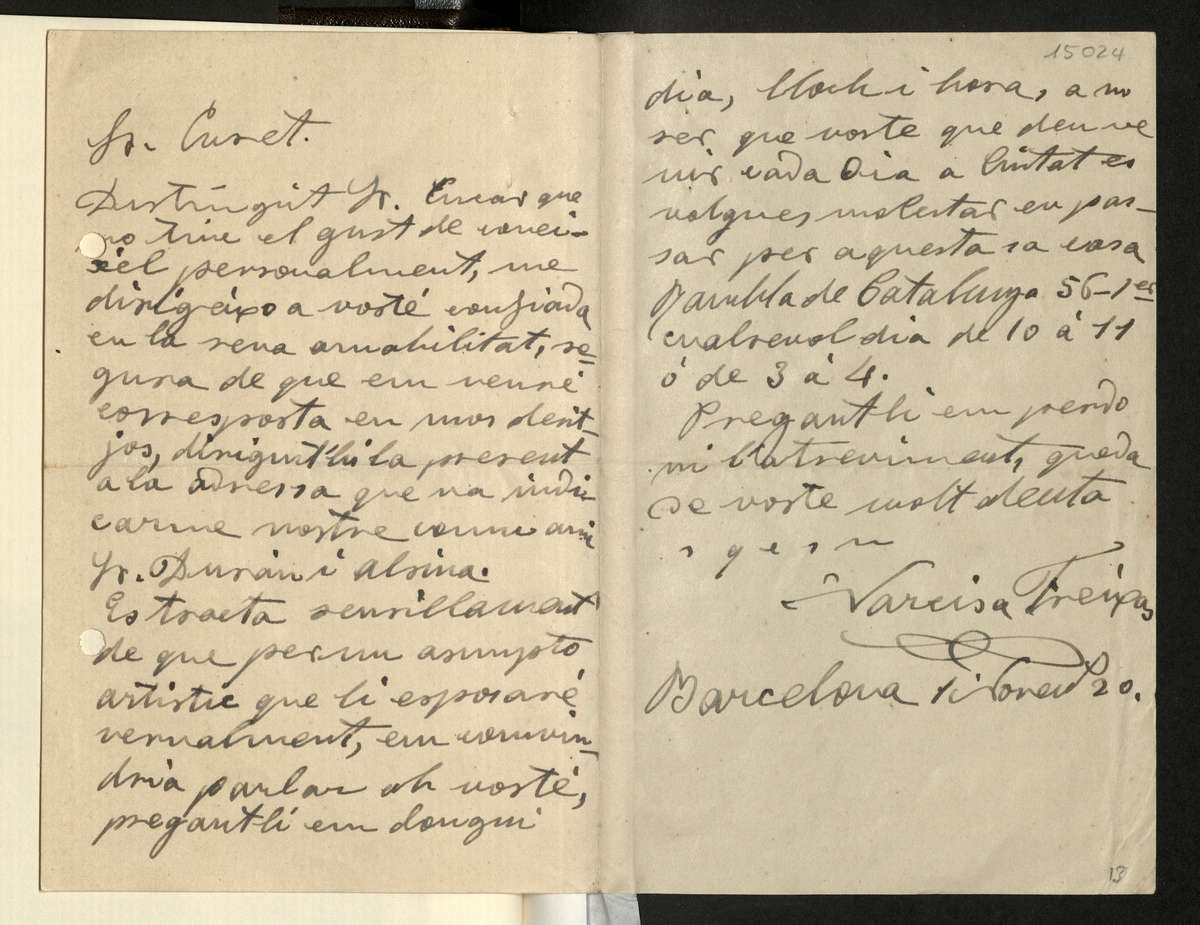 Sr. Curet.
Distingüit Sr. Encar que
no tinc el gust de conei-
xel personalment, me
dirigeixo a vosté confiada
en la seva amabilitat, se-
gura de que em veuré
corresposta en mos desit-
jos, dirigintli la present
a la adressa que va indi
carme nostre comu amic
Sr. Durán i Alsina.
Es tracta senzillament
de que per un asumpto
artistic que li esposaré
vervalment, em convin-
dria parlar ab vosté,
pregantli em dongui
15024
dia, lloch i hora, a no
ser, que voste que deu ve
nir cada dia a Ciutat es
volgues molestar en pas-
sar per aquesta sa casa
Rambla de Catalunya 56-1er
cualsevol dia de 10 á 11
ó de 3 á 4.
Pregantli em perdo
ni l'atreviment, queda
de voste molt atenta
s q e s m
Narcisa Freixas
Barcelona 1i Novem 20.
13